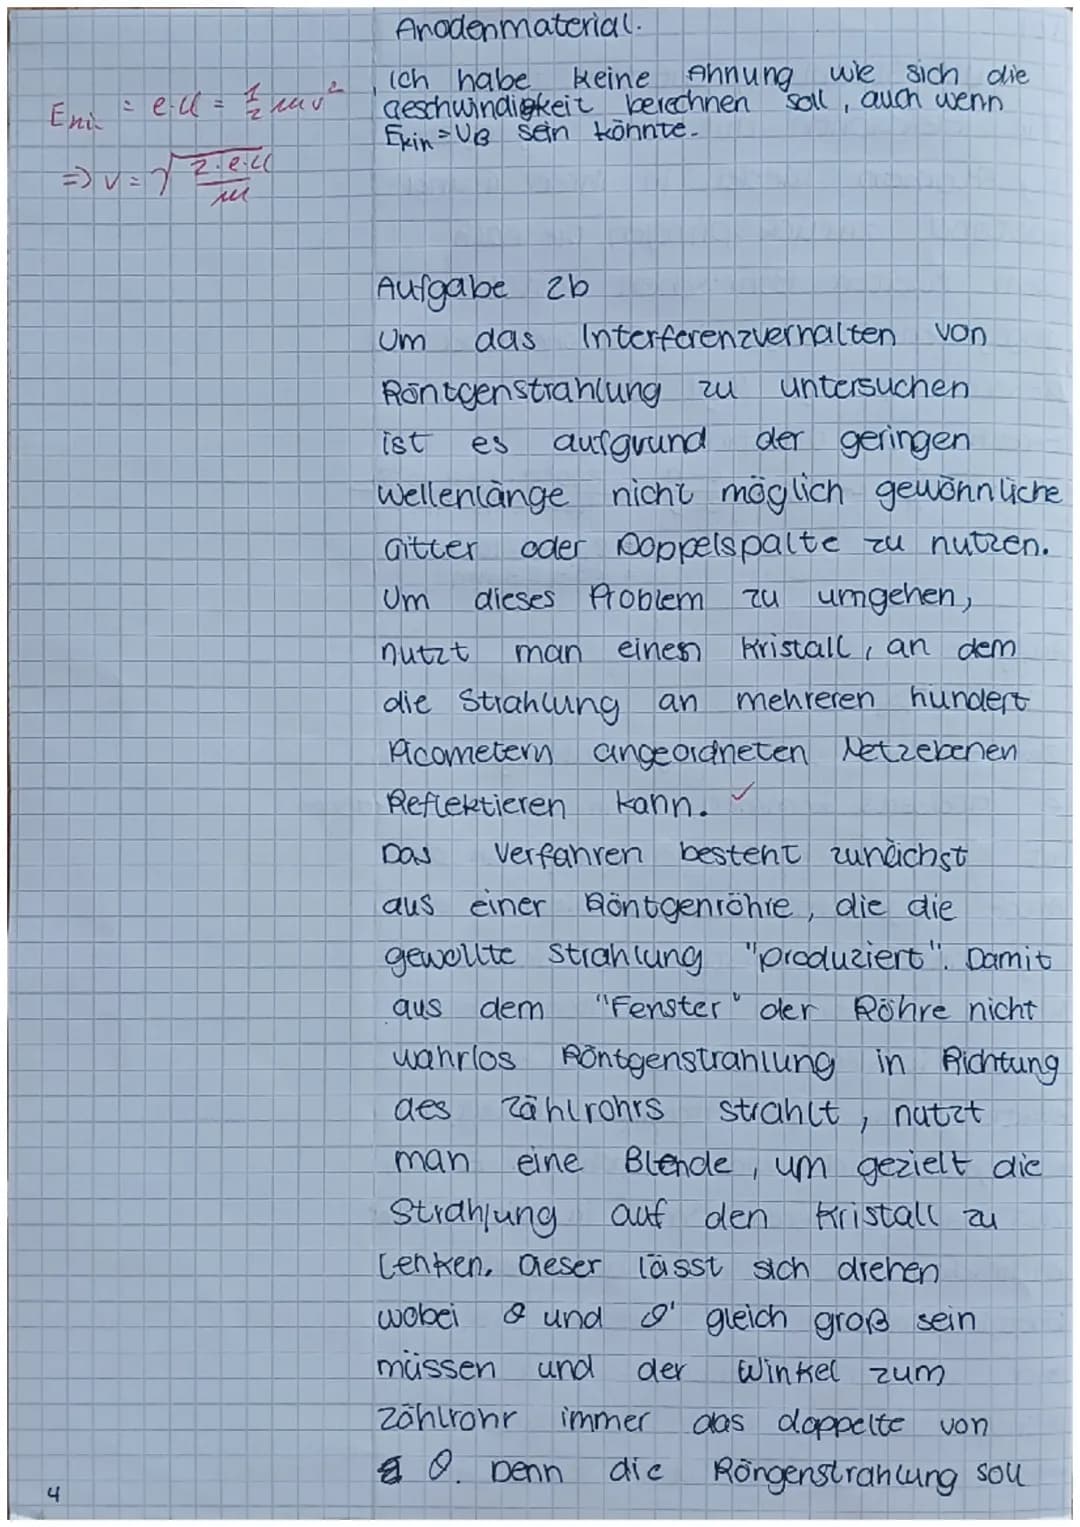 Anodenmaterial.
Ich habe keine Ahnung wie sich die
Geschwindigkeit berechnen soll, auch wenn
Ekin = UB sein könnte.
Ekin = e·U = 1/2 m v²
=> v = √(2·e·U/m)
Aufgabe 2b
Um das Interferenzverhalten von
Röntgenstrahlung zu untersuchen
ist es aufgrund der geringen
Wellenlänge nicht möglich gewöhnliche
Gitter oder Doppelspalte zu nutzen.
Um dieses Problem zu umgehen,
nutzt man einen Kristall, an dem
die Strahlung an mehreren hundert
Picometern angeordneten Netzebenen
Reflektieren kann. ✓
Das Verfahren besteht zunächst
aus einer Röntgenröhre, die die
gewollte Strahlung "produziert". Damit
aus dem "Fenster" der Röhre nicht
wahrlos Röntgenstrahlung in Richtung
des Zählrohrs strahlt, nutzt
man eine Blende, um gezielt die
Strahlung auf den Kristall zu
Lenken. Dieser lässt sich drehen
wobei ϑ und ϑ' gleich groß sein
müssen und der Winkel zum
Zählrohr immer das doppelte von
ϑ. Denn die Röngenstrahlung soll
4